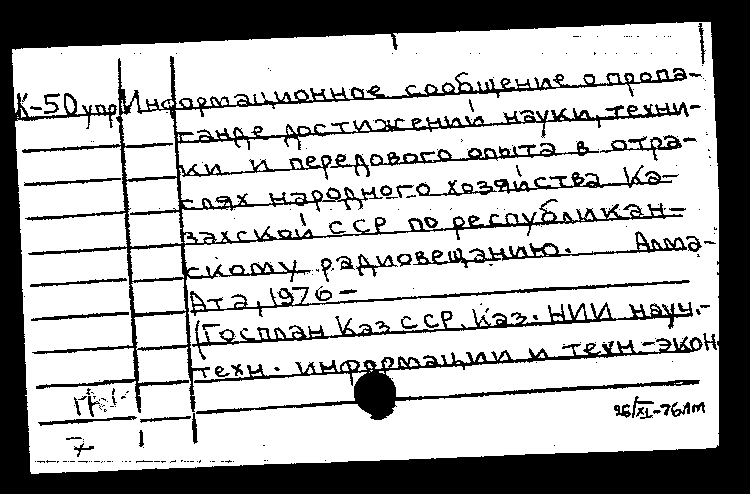 К-50упр. Информационное сообщение о пропа-
ганде достижений науки, техни-
ки и передового опыта в отра-
слях народного хозяйства Ка-
захской ССР по республикан-
скому радиовещанию. Алма-
Ата, 1976 -
(Госплан КазССР. Каз. НИИ науч.-
техн. информации и техн.-экон.
26/XI-76
7